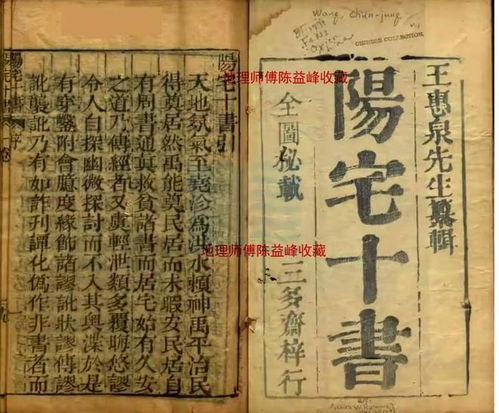 Wang Chun-jung
CHINESE COLLECTION
王惠泉先生纂輯
陽宅十書
全圖秘載
三多齋梓行
陽宅十書引
天地氛氣至堯殄為洪水賴神禹平治民
得奠居然禹能奠民居而未暇安民居自
有周書通眞救貧諸書而居宅始有久安
之道乃傳經者又輕泄類多覆晦悠謬
令人自探幽微探討而不入其於是
有穿鑿附會臆度緣飾諸謬訛狀謬傳謬
訛襲訛乃有如詐刊譚化為作非書者而
陽宅十書
地理师傅陈益峰收藏
地理师傅陈益峰收藏